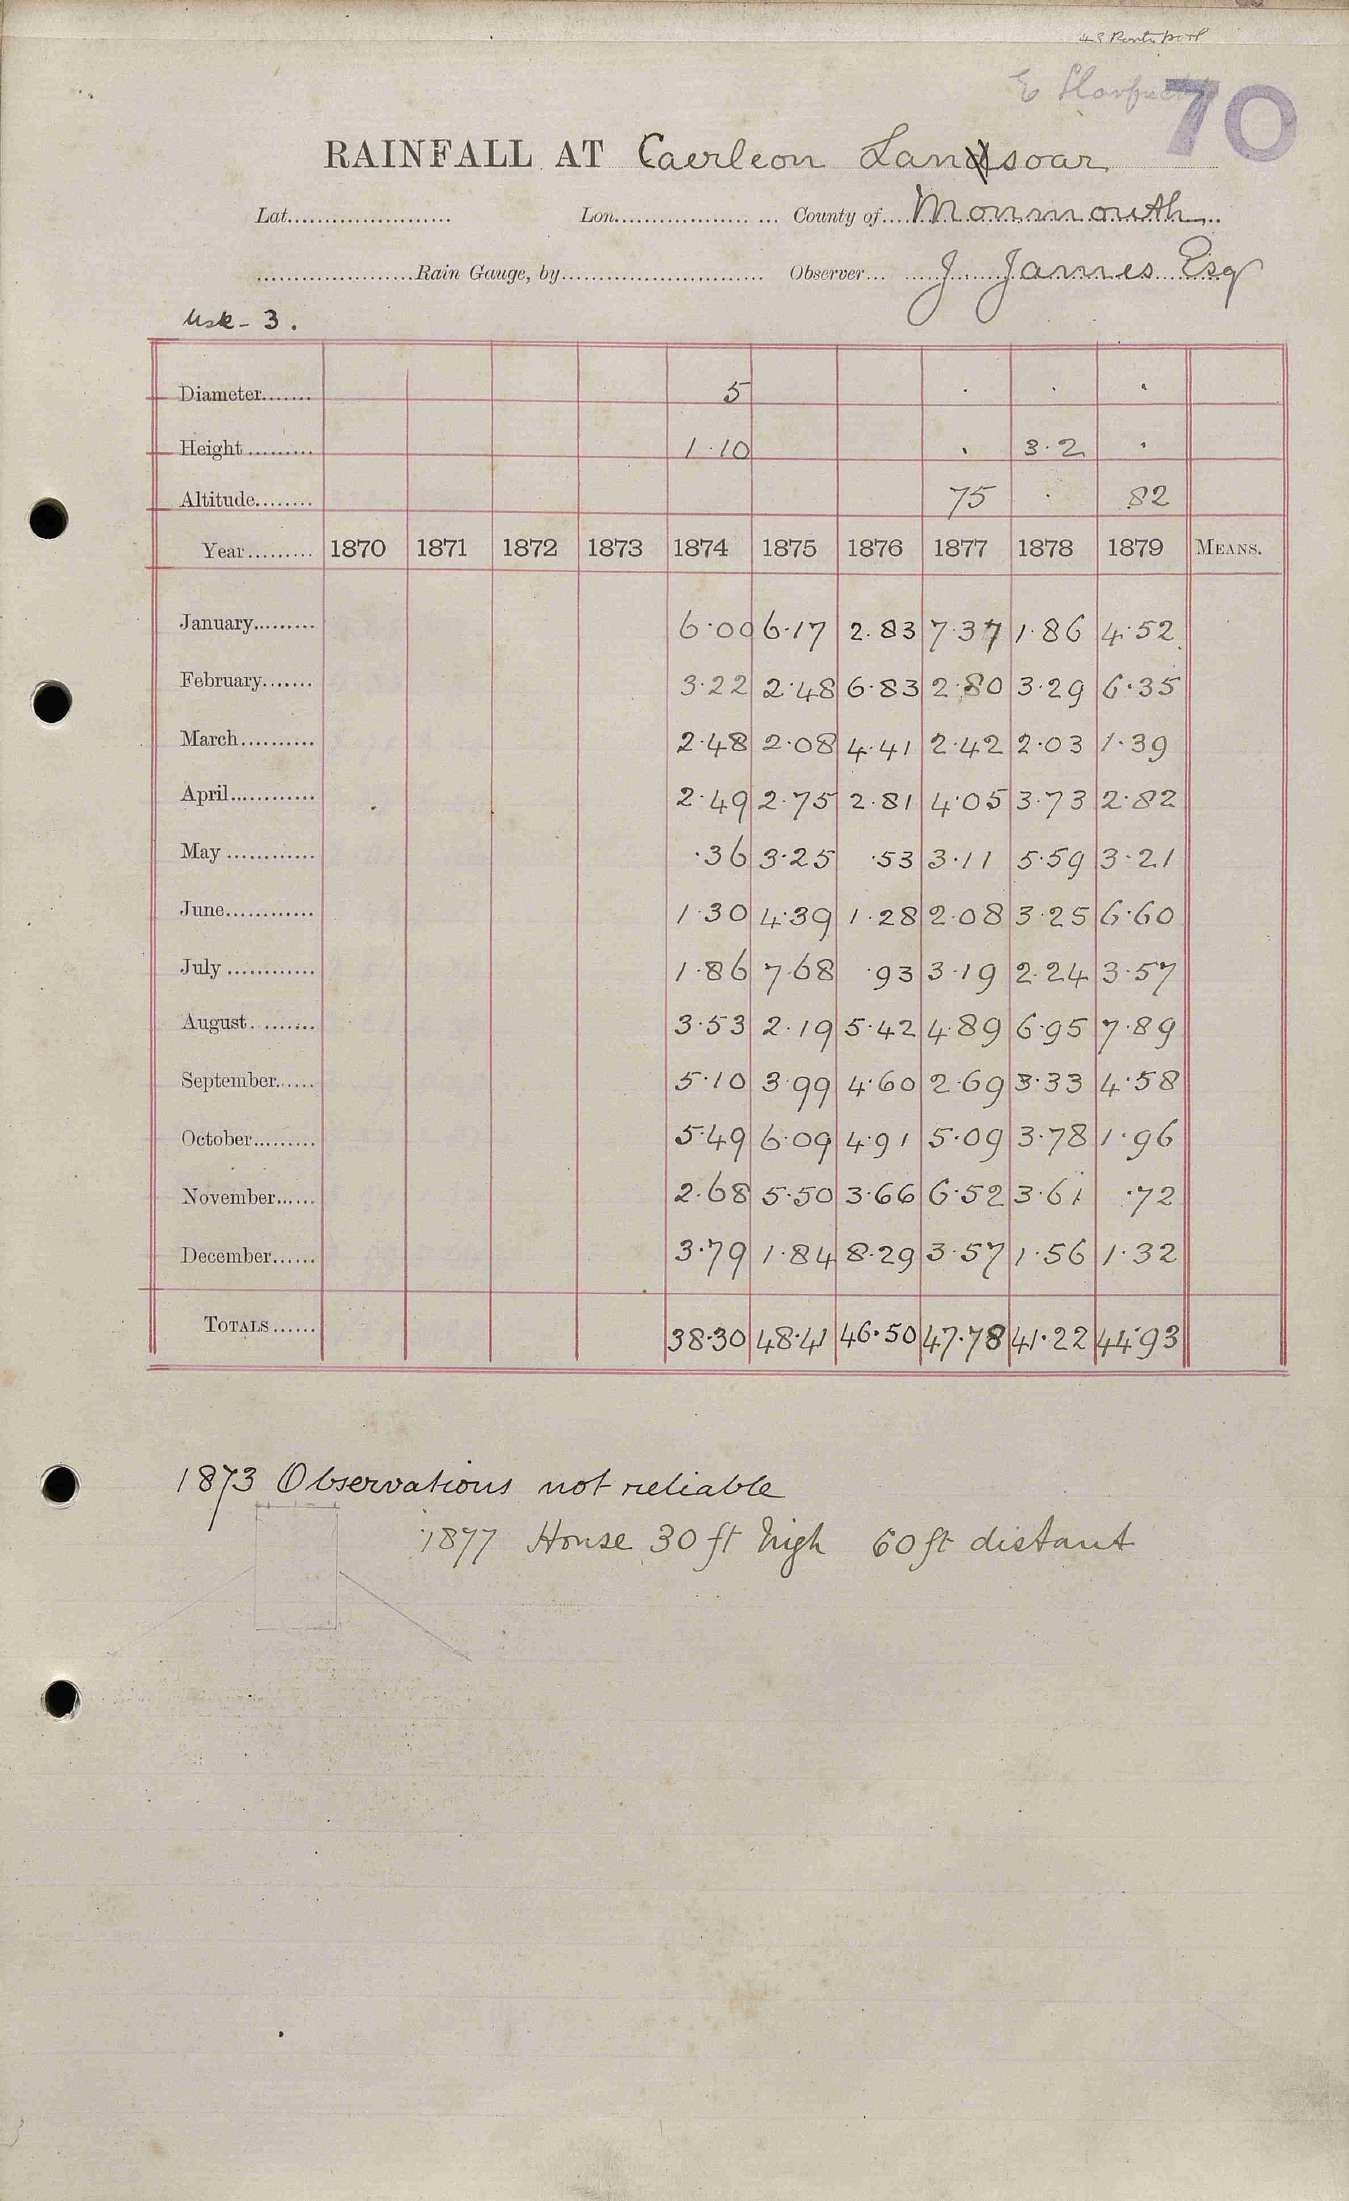 70
RAINFALL AT Caerleon Lansoar
Lat. Lon. County of Monmouth
Rain Gauge, by Observer J James Esq
Usk - 3.
Diameter 5 · · ·
Height 1·10 · 3·2 ·
Altitude 75 · 82
Year 1870 1871 1872 1873 1874 1875 1876 1877 1878 1879 MEANS.
January 6·00 6·17 2.83 7·37 1·86 4·52
February 3·22 2·48 6·83 2·80 3·29 6·35
March 2·48 2·08 4·41 2·42 2·03 1·39
April 2·49 2·75 2·81 4·05 3·73 2·82
May ·36 3·25 ·53 3·11 5·59 3·21
June 1·30 4·39 1·28 2·08 3·25 6·60
July 1·86 7·68 ·93 3·19 2·24 3·57
August 3·53 2·19 5·42 4·89 6·95 7·89
September 5·10 3·99 4·60 2·69 3·33 4·58
October 5·49 6·09 4·91 5·09 3·78 1·96
November 2·68 5·50 3·66 6·52 3·61 ·72
December 3·79 1·84 8·29 3·57 1·56 1·32
TOTALS 38·30 48·41 46·50 47·78 41·22 44·93
1873 Observations not reliable
1877 House 30 ft high 60 ft distant